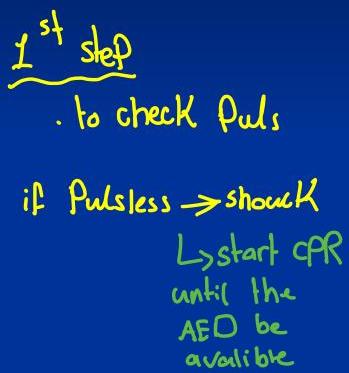 1st step
. to check Puls
if Pulsless → shouck
↳ start CPR
until the
AED be
avalible